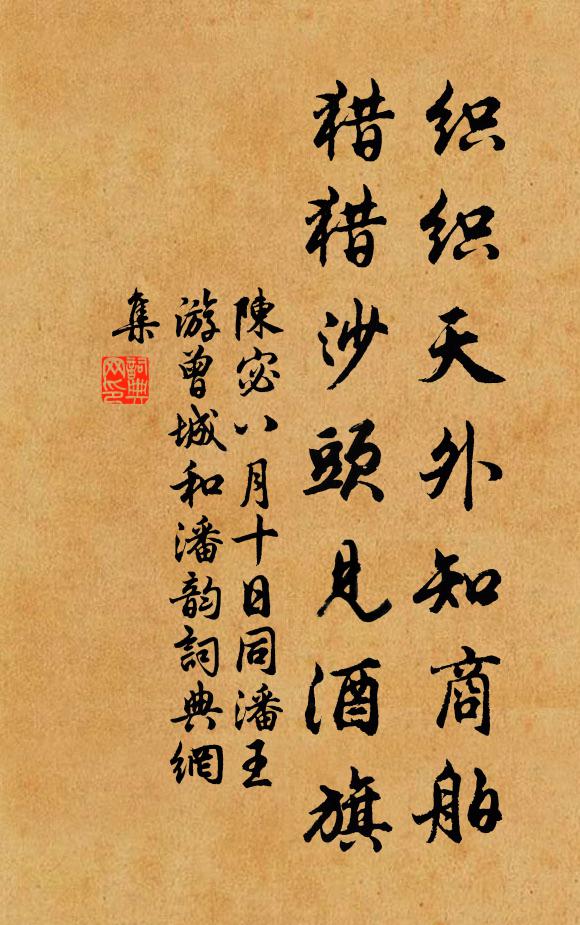 织织天外知商舶
猎猎沙頭見酒旗
陳宓八月十日同潘王
游曾城和潘韵詞典網
集
詞典
网印